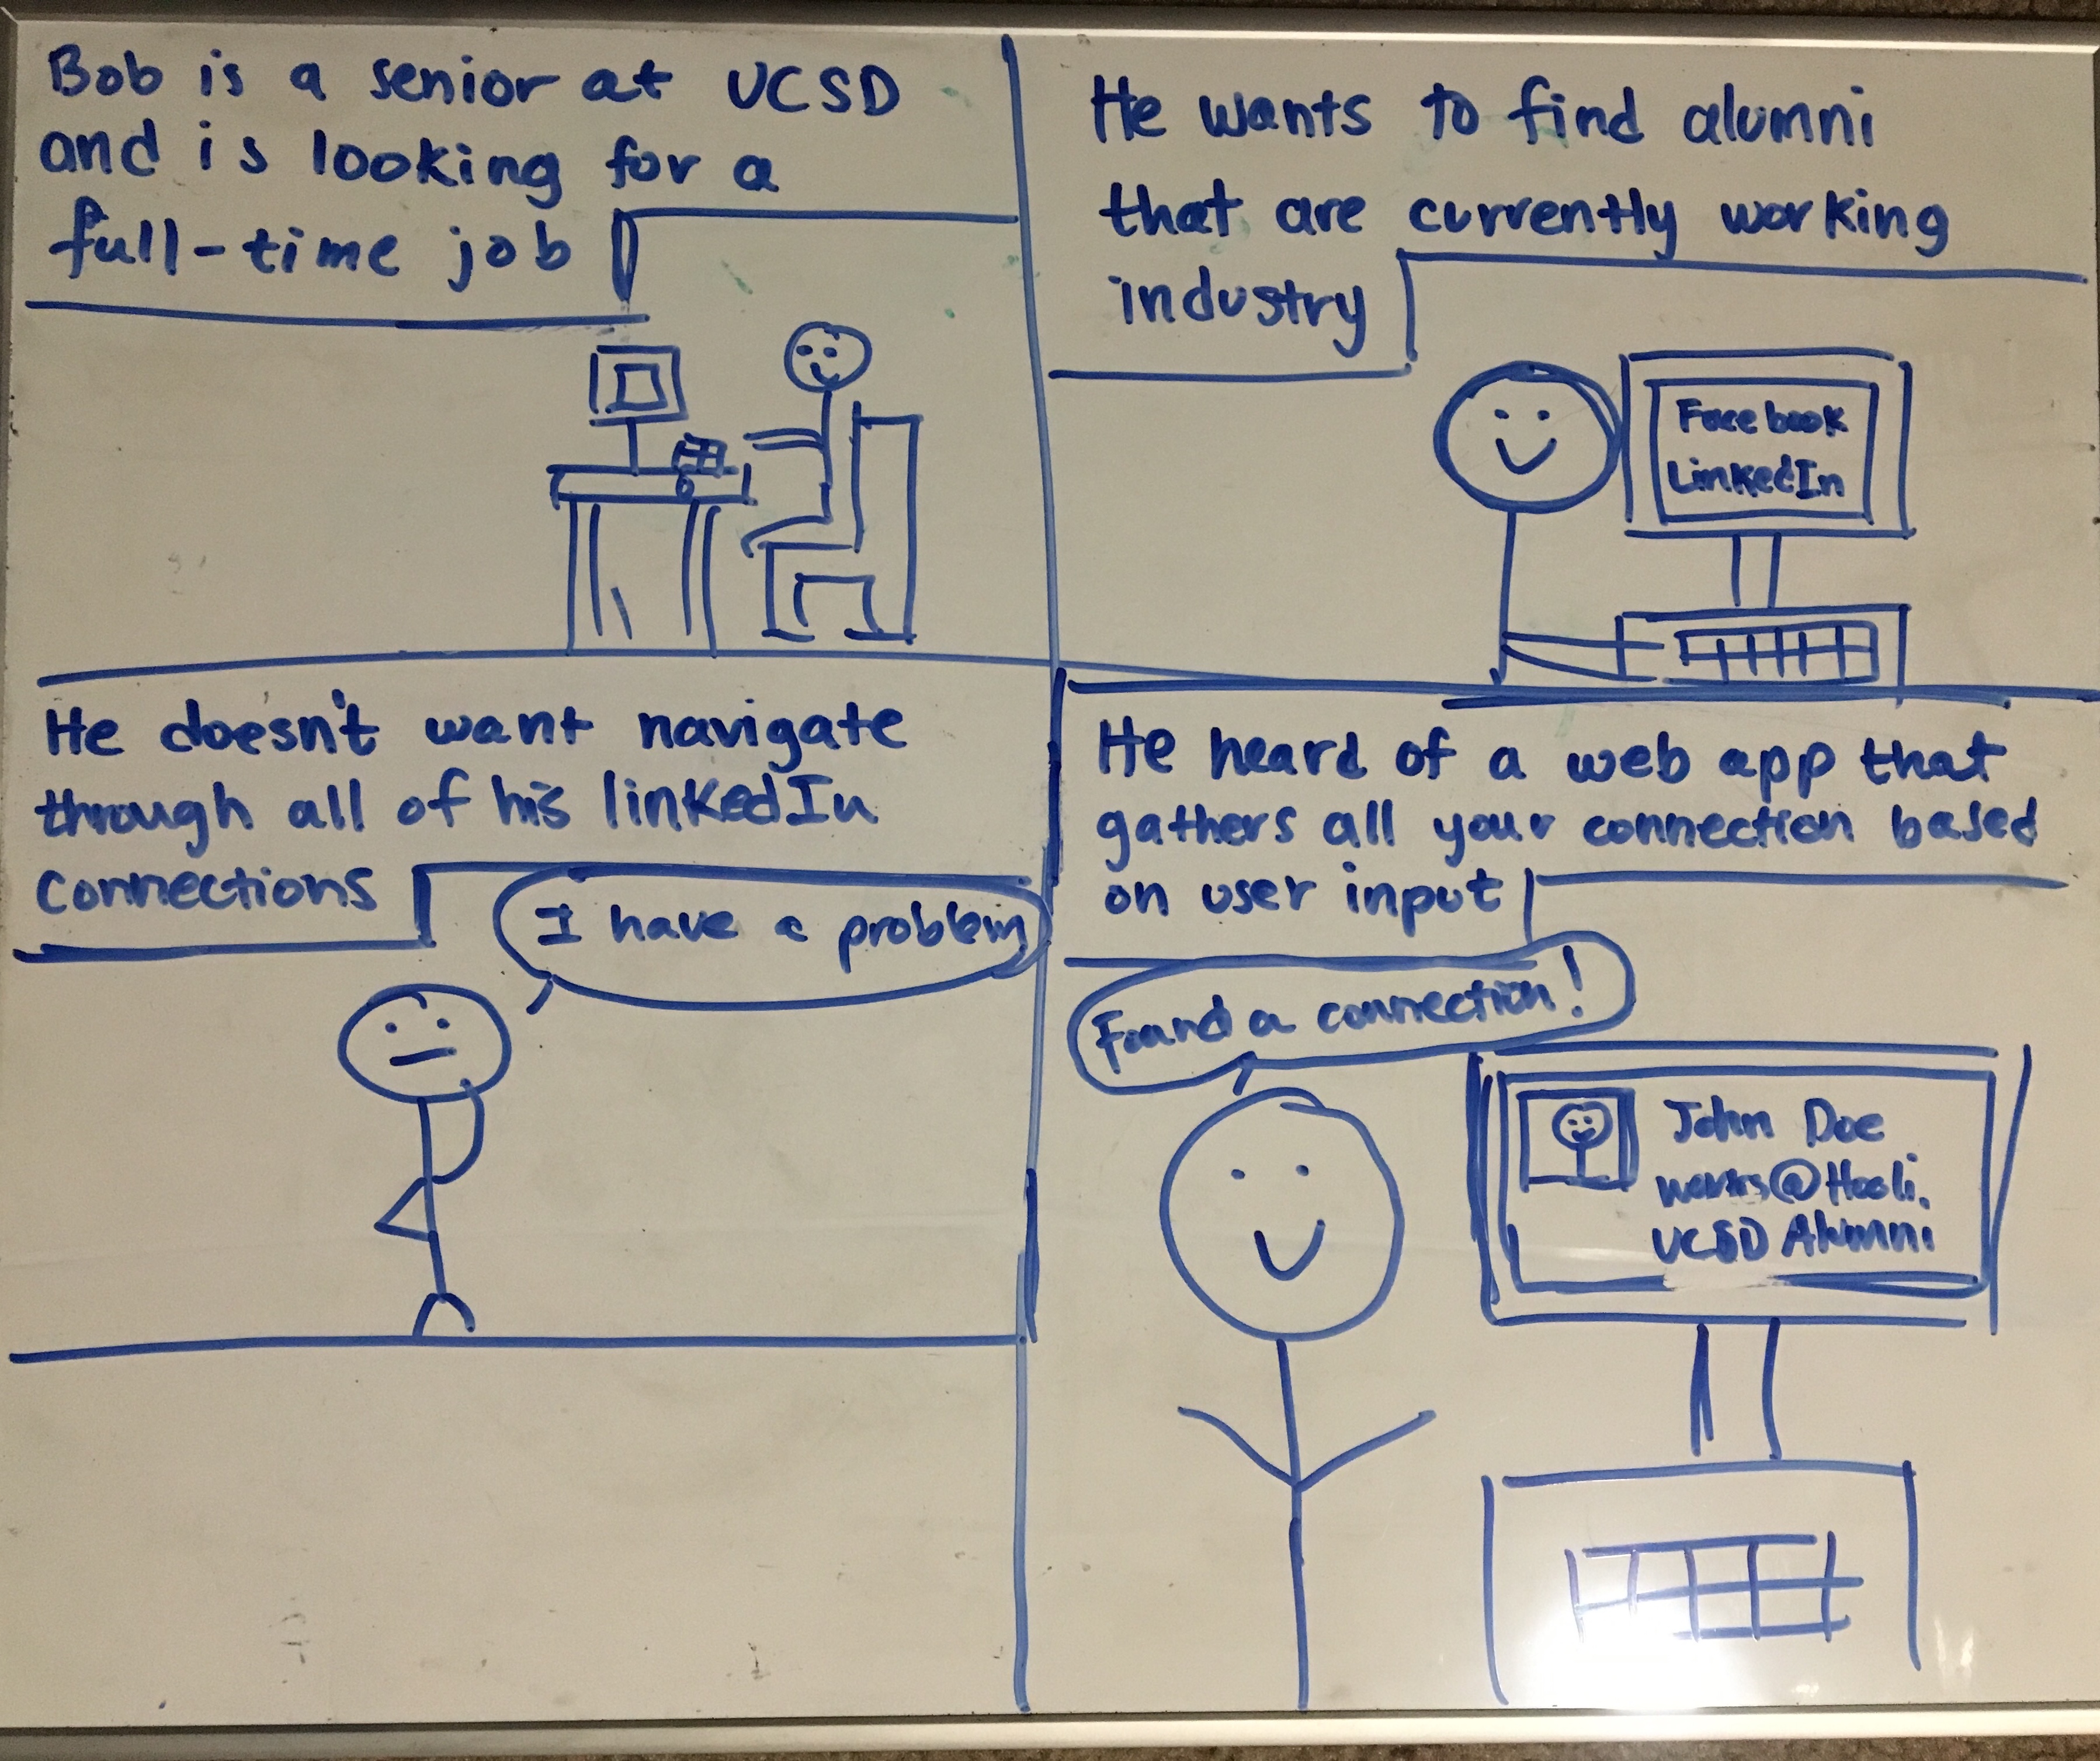 Bob is a senior at UCSD
and is looking for a
full-time job
He wants to find alumni
that are currently working
industry
Facebook
LinkedIn
He doesn't want navigate
through all of his linkedIn
connections
I have a problem
He heard of a web app that
gathers all your connection based
on user input
Found a connection!
John Doe
works@Hooli.
UCSD Alumni